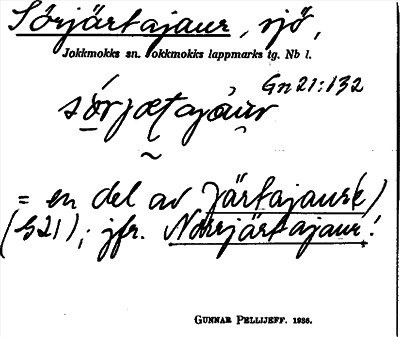 Sörjärtajaur, sjö,
Jokkmokks sn. Jokkmokks lappmarks tg. Nb l.
Gn 21:132
sórjætajåur
= en del av Järtajaurk)
(S21); jfr. Norrjärtajaur!
GUNNAR PELLIJEFF. 1936.